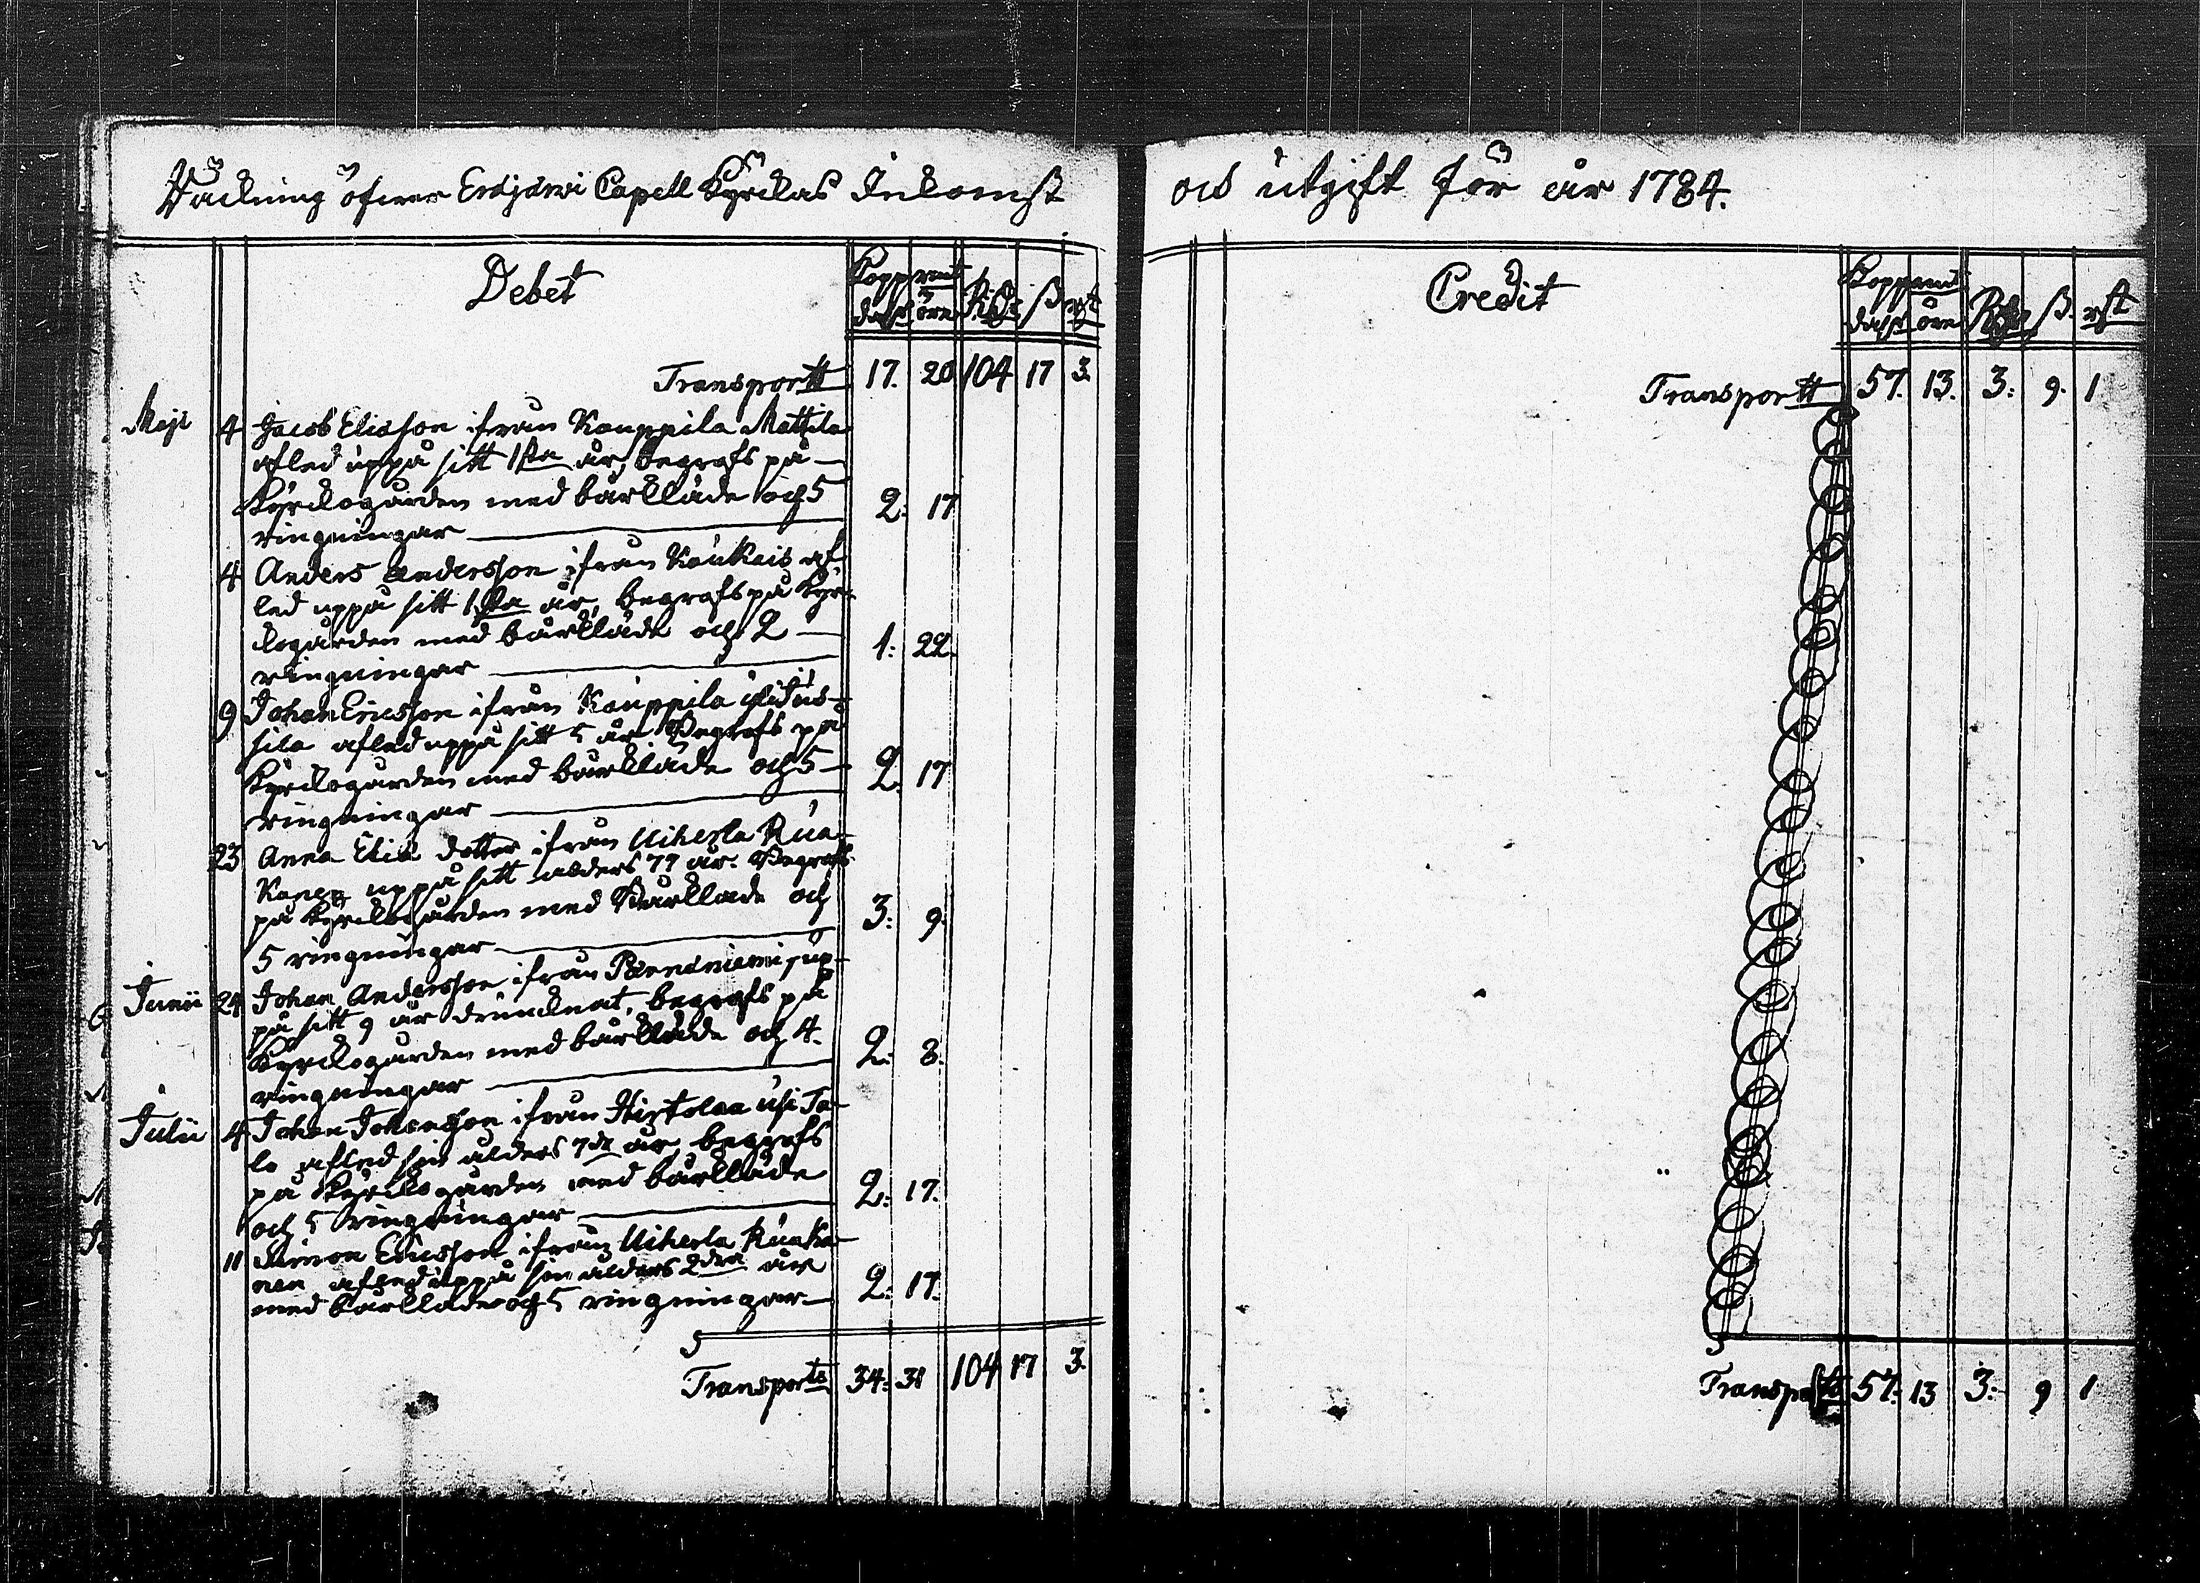 Räckning öfwer Erajärwi Capell Kyrckas Inkomst
och utgift för år 1784.
Debet
Kopparmt
dahlr öre Rdr ß rst
Transportt 17. 20 104 17 3.
Maji 4 Jacob Eliasson ifrån Kauppila Mattila
afled uppå sitt 1sta år, begrafs på
Kyrckogården med bårkläde och 5
ringningar 2: 17
4 Anders Andersson ifrån Kaukais af-
led uppå sitt 1sta år, begrafs på Kyr-
ckogården med bårkläde och 2
ringningar 1: 22.
9 Johan Ericsson ifrån Kauppila
sila afled uppå sitt 5 år Begrafs på
Kyrckogården med bårkläde och 5
ringningar 2. 17
23 Anna Elia dotter ifrån Uiherla Rua-
uppå sitt alders 77 år. Begrafs
på Kyrckogården med Bårkläde och
5 ringningar 3: 9.
Junii 24 Johan Andersson ifrån up-
på sitt 9 år druncknat, begrafs på
Kyrckogården med bårkläde och 4.
ringningar 2: 8.
Julii 4 Johan Johansson ifrån Hirtolaa usi Ta-
lo afled sin alders 7de år, begrafs
på Kyrckogården med bårkläde
och 5 ringningar 2: 17.
11 Simon Ericsson ifrån Uiherla Ruaka-
nen afled uppå sin alders 2dra år
med bårkläde och 5 ringningar 2: 17.
Transporte 34: 31 104 17 3.
Credit
Kopparmt
dahlr öre Rdr ß. rst
Transportt 57. 13. 3: 9. 1
Transportt 57: 13 3: 9 1